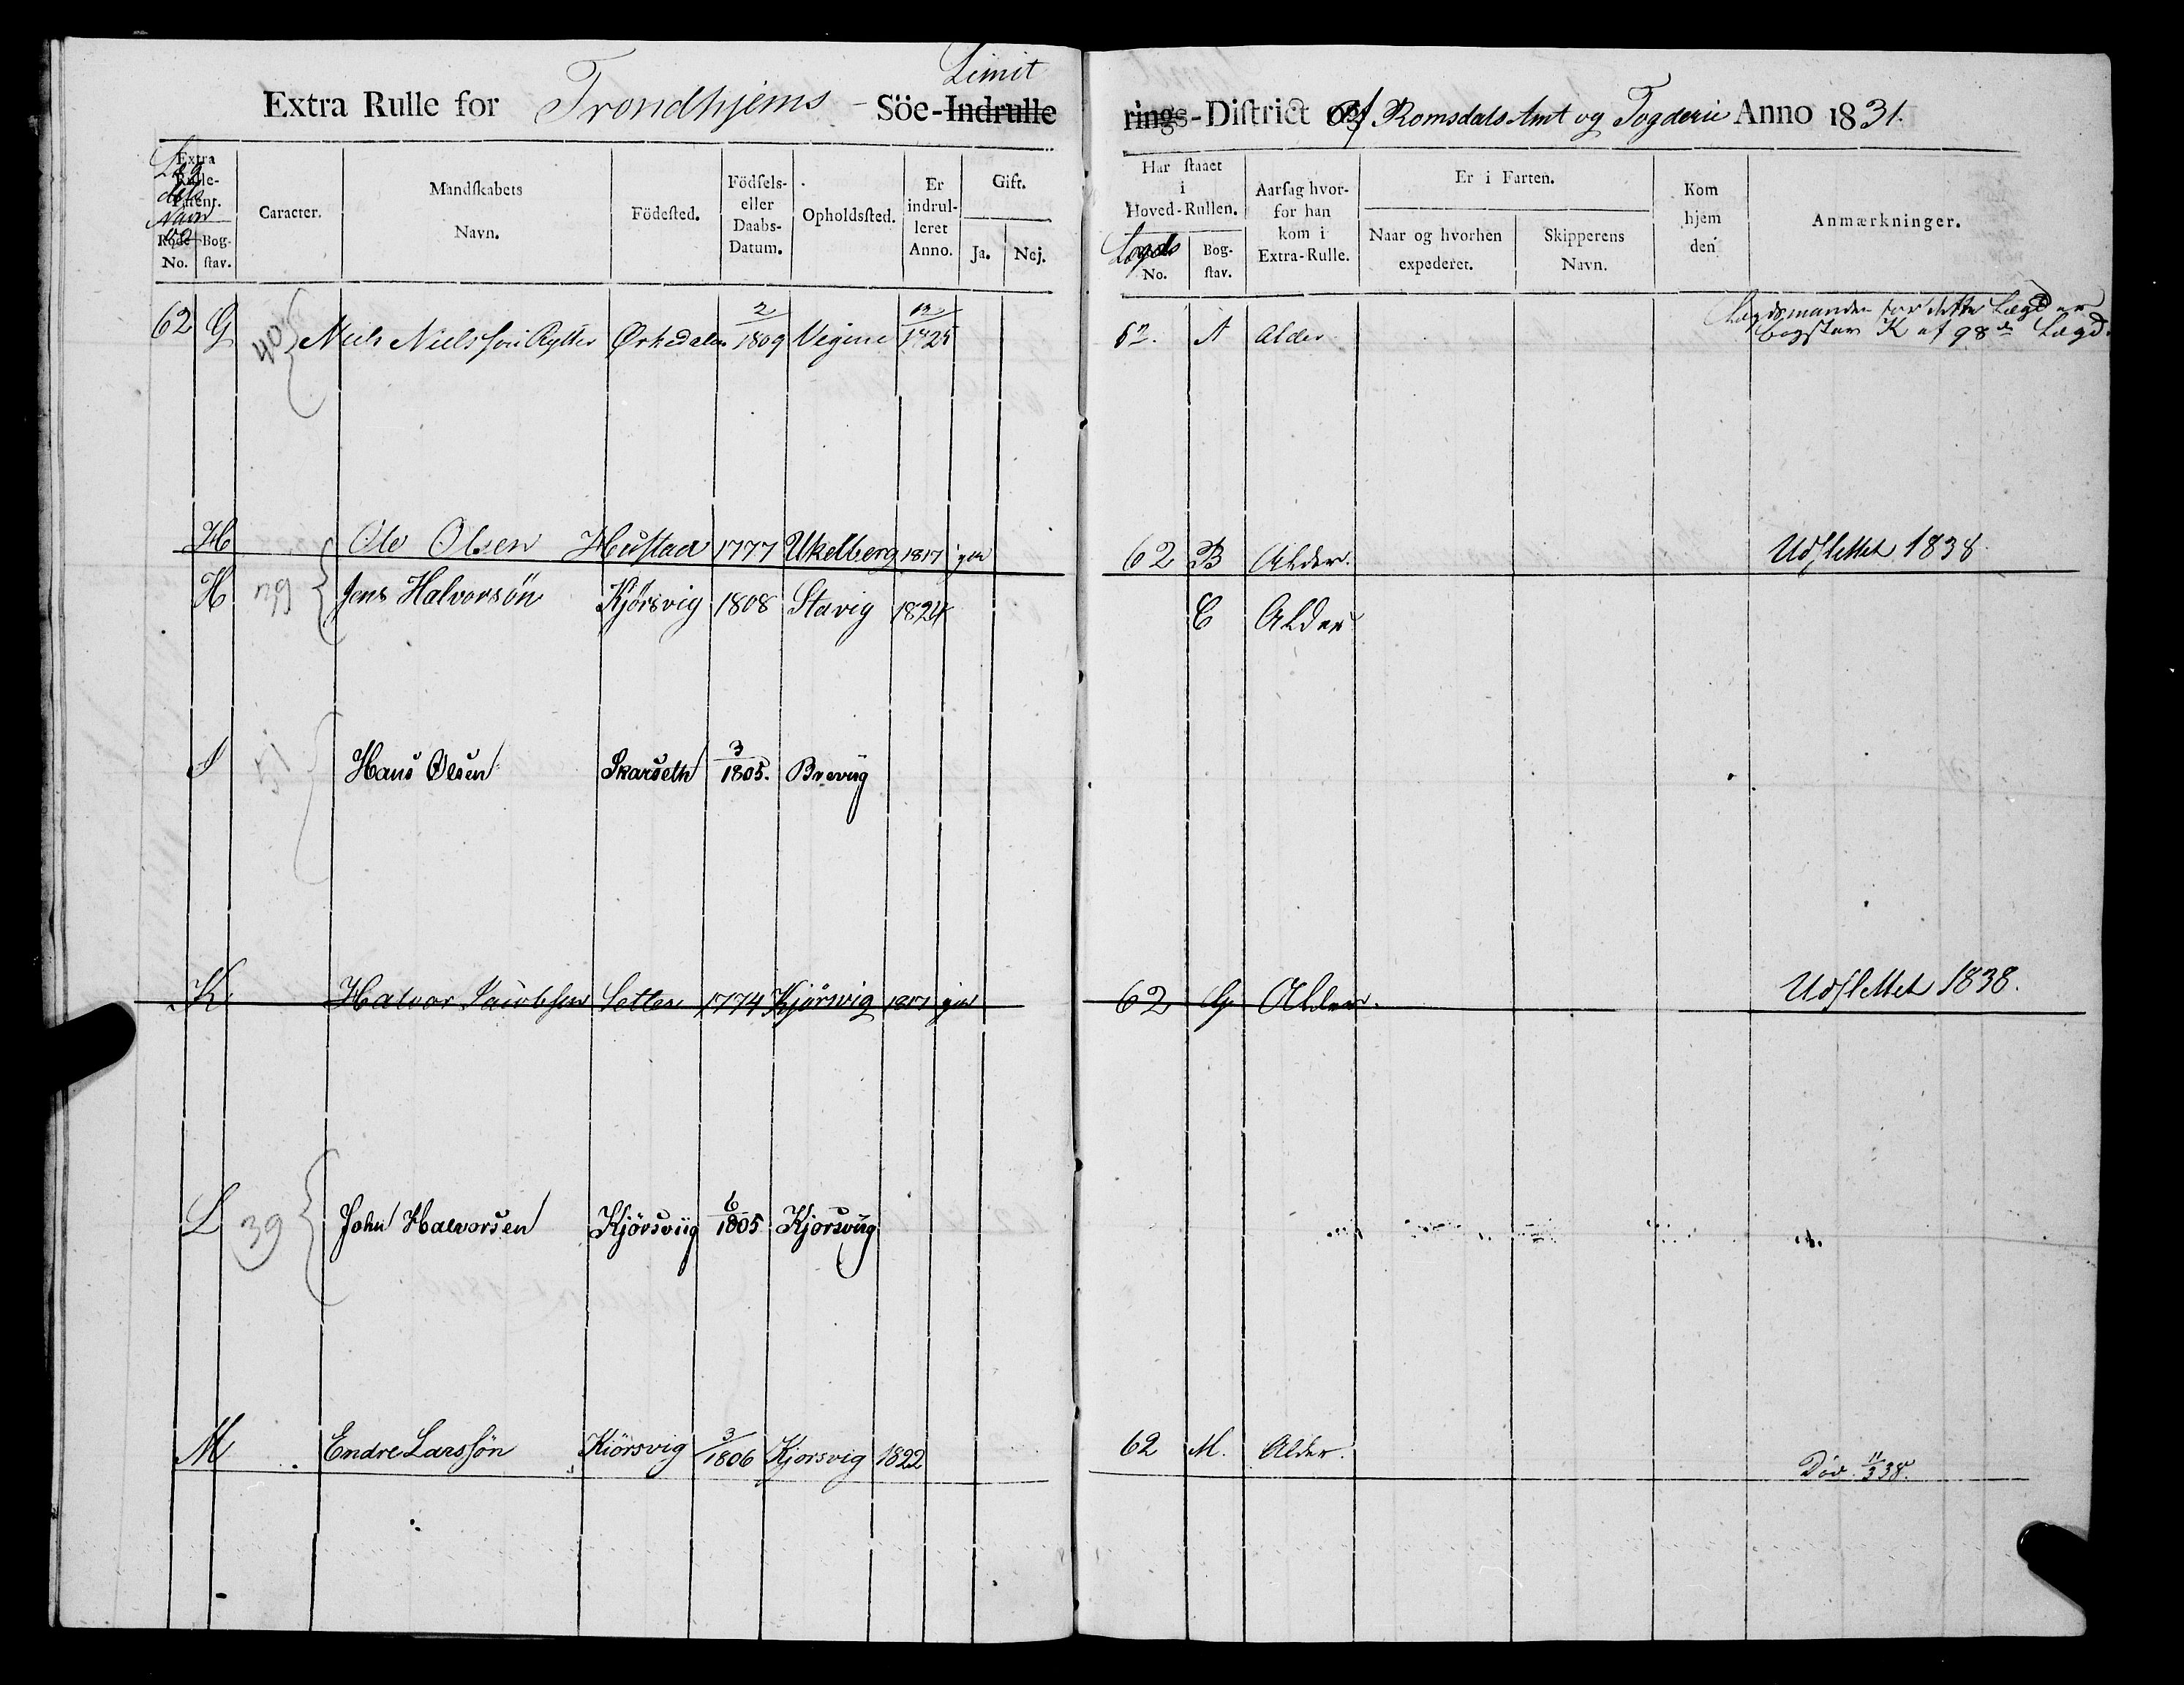 Limit
Extra Rulle for Trondhjems - Söe-Indrulle
rings-District af Romsdals Amt og Fogderie Anno 1831.
Extra
Rulle-
Lag
dets
Navn
No
Rode Bog-
No. stav.
Caracter.
Mandskabets
Navn.
Födested.
Födsels-
eller
Daabs-
Datum.
Opholdssted.
Er
indrul-
leret
Anno.
Gift.
Ja. Nej.
Har staaet
i
Hoved-Rullen.
Lægds
No.
Bog-
stav.
Aarsag hvor-
for han
kom i
Extra-Rulle.
Er i Farten.
Naar og hvorhen
expederet.
Skipperens
Navn.
Kom
hjem
den
Anmærkninger.
Lægdsmanden for dette Lægd er
bogstav K af 98de Lægd.
62 G 40 Niels Nielssön Rytter Ørkedalen 2/1809 Vegine 12/1825 62. A Alder
H Ole Olsen Hustad 1777 Ukelberg 1817 gia 62 B Alder. Udslettet 1838
H 39 Jens Halvorsön Kjörsvig 1808 Stavig 1824 C Alder
I 51 Hans Olsen Skarseth 3/1805. Breviig
K Halvor Jacobsen Setten 1774 Kjörsvig 1817 gia 62 G Alder. Udslettet 1838.
L 39 John Halvorsen Kjörsviig 6/1805 Kjorsviig
M Endre Larssön Kiörsvig 3/1806 Kjorsvig 1822 62 M. Alder. Död 11/3 38.